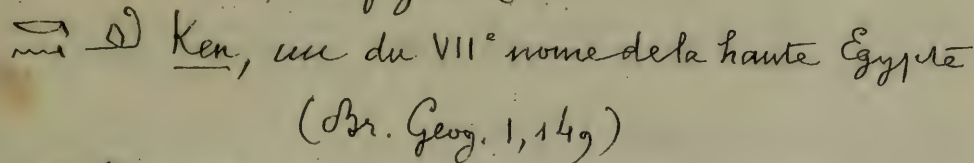 Ken, uu du VII<sup>e</sup> nome de la haute Égypte
(Br. Geog. I, 149)